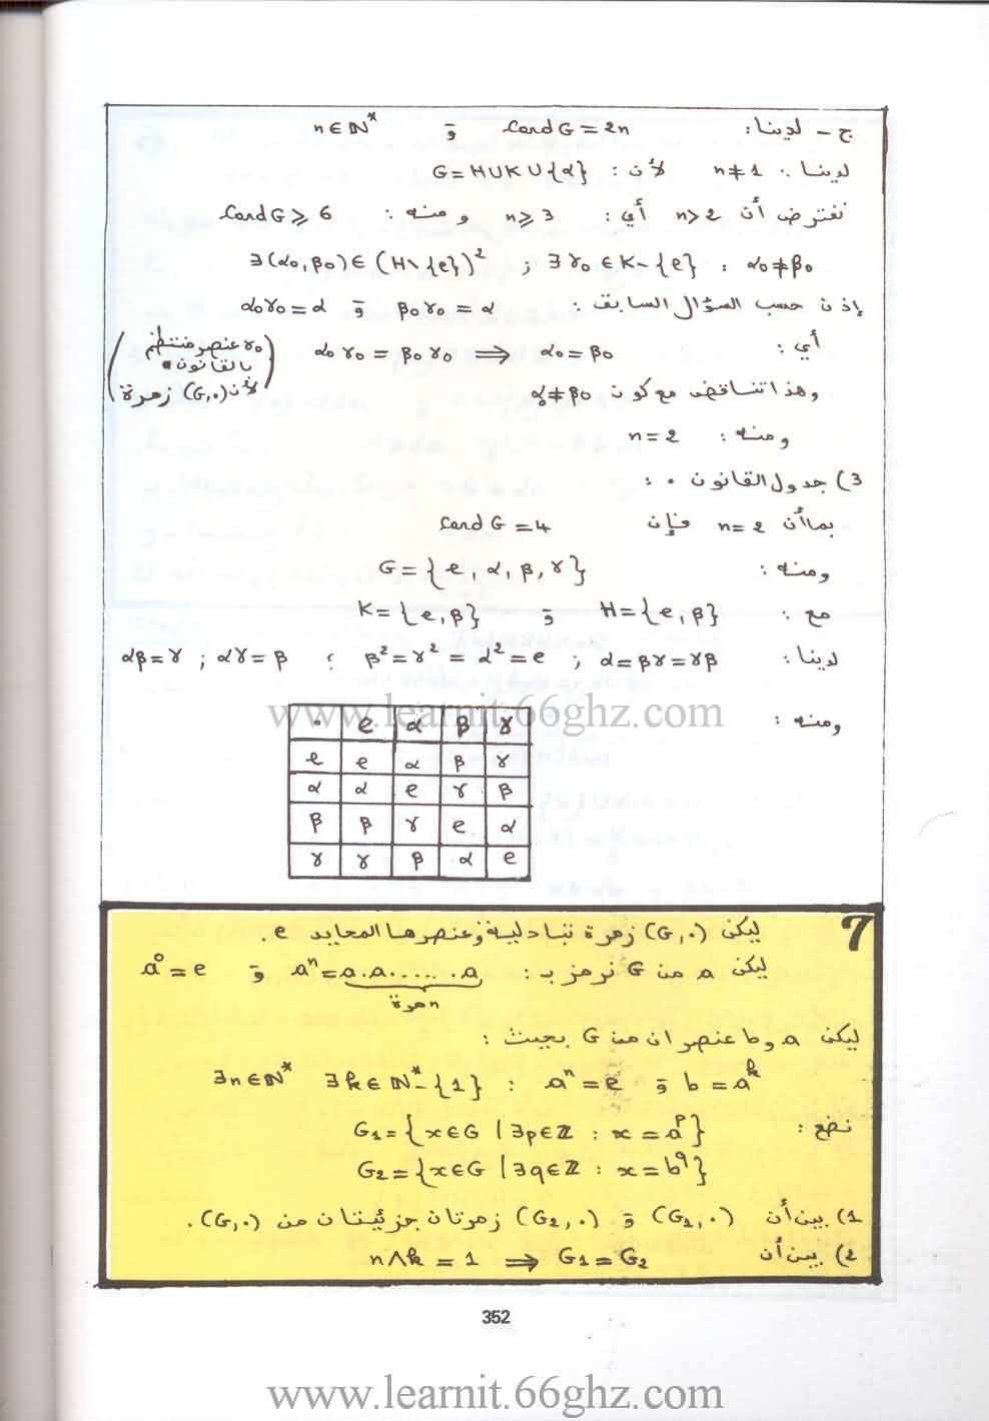 ج - لدينا: Card G = 2n وَ n ∈ ℕ*
لدينا: n ≠ 1 لأن: G = H∪K∪{α}
نفترض أن n > 2 أي: n ⩾ 3 ومنه: Card G ⩾ 6
∃(α₀, β₀) ∈ (H\{e})² ; ∃γ₀ ∈ K-{e} : α₀ ≠ β₀
إذن حسب السؤال السابق: β₀γ₀ = α وَ α₀γ₀ = α
أي: α₀γ₀ = β₀γ₀ ⟹ α₀ = β₀ (γ₀ عنصر منتظم بالقانون • لأن (G,.) زمرة)
وهذا تناقض مع كون α₀ ≠ β₀
ومنه: n = 2
3) جدول القانون • :
بما أن n = 2 فإن Card G = 4
ومنه: G = {e, α, β, γ}
مع: H = {e, β} وَ K = {e, β}
لدينا: α = βγ = γβ ; β² = γ² = α² = e ; αγ = β ; αβ = γ
ومنه:
www.learnit.66ghz.com
• e α β γ
e e α β γ
α α e γ β
β β γ e α
γ γ β α e
7 ليكن (G,.) زمرة تبادلية وعنصرها المحايد e.
ليكن a من G نرمز بـ: aⁿ = a.a.....a وَ a⁰ = e
n مرة
ليكن a و b عنصران من G بحيث:
∃n ∈ ℕ* ∃k ∈ ℕ*-{1} : aⁿ = e وَ b = aᵏ
نضع: G₁ = {x∈G | ∃p∈ℤ : x = aᵖ}
G₂ = {x∈G | ∃q∈ℤ : x = b^q}
1) بين أن (G₁,.) وَ (G₂,.) زمرتان جزئيتان من (G,.).
2) بين أن n∧k = 1 ⟹ G₁ = G₂
352
www.learnit.66ghz.com